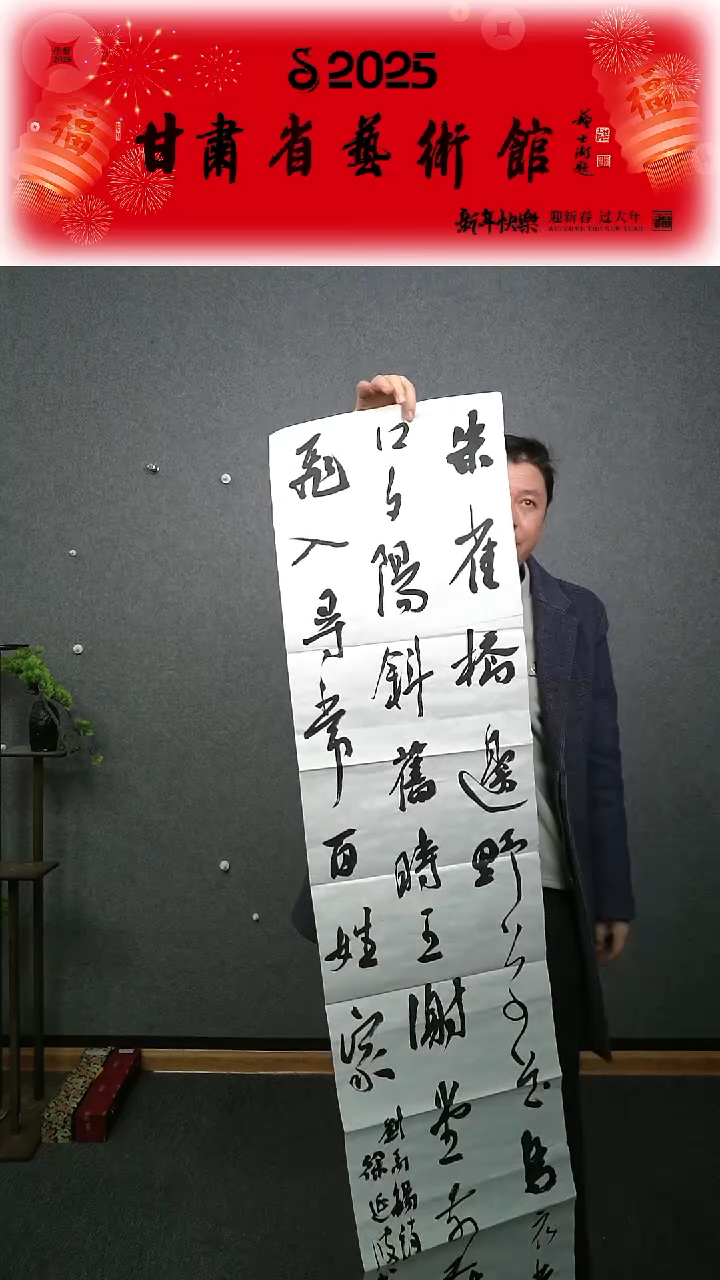 2025
甘肅省藝術館
新年快樂
迎新春 过大年
福
福
朱雀橋邊野草花烏衣
口夕陽斜舊時王謝堂前
飛入尋常百姓家
劉禹錫詩
徐延波